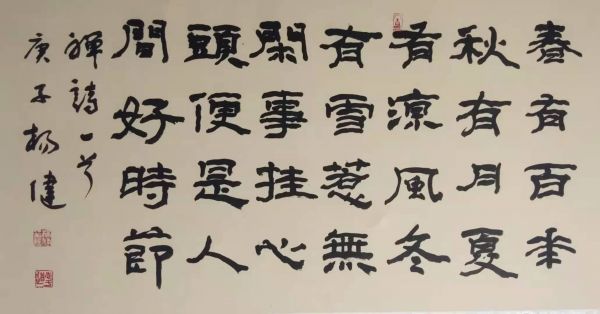 春有百花
秋有月夏
有涼風冬
有雪惹無
閑事挂心
頭便是人
間好時節
禪詩一首
庚子楊健